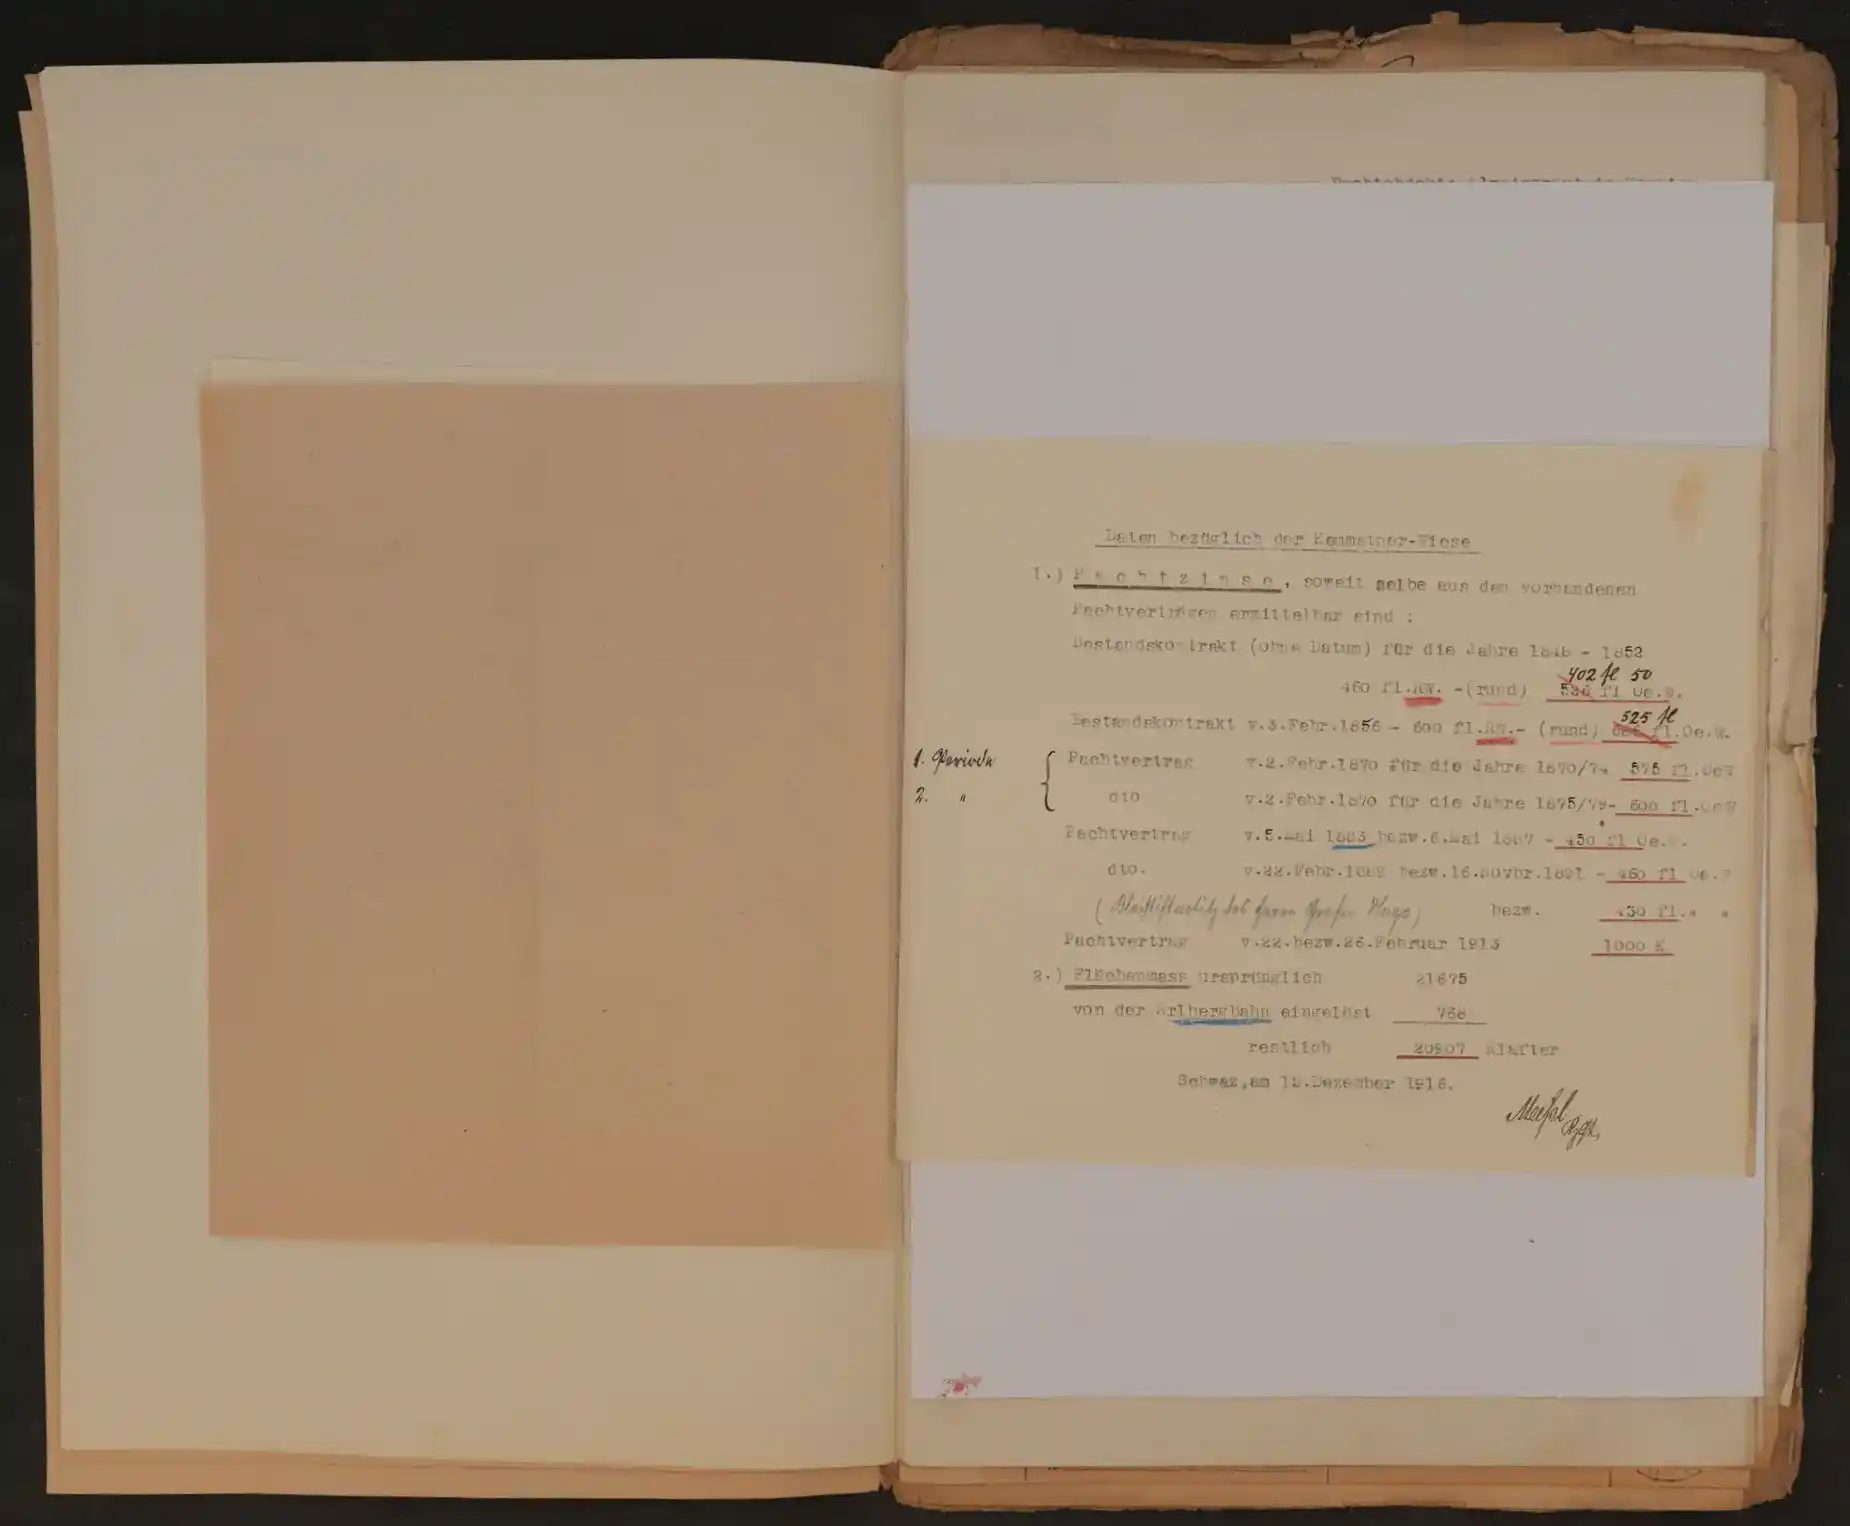 Daten bezüglich der Kemmatner-Wiese
1.) Pachtzinse, soweit selbe aus den vorhandenen
Pachtverträgen ermittelbar sind :
Bestandskontrakt (ohne Datum) für die Jahre 1848 - 1852
402 fl 50
460 fl.RW. -(rund) fl Oe.W.
525 fl
Bestandskontrakt v.3.Febr.1856 - 600 fl.RW.- (rund) fl.Oe.W.
1. Periode Pachtvertrag v.2.Febr.1870 für die Jahre 1870/74 575 fl.OeW
2. " dto v.2.Febr.1870 für die Jahre 1875/79- 600 fl.OeW
Pachtvertrag v.5.Mai 1883 bezw.6.Mai 1887 - 450 fl Oe.W.
dto. v.22.Febr.1889 bezw.16.Novbr.1891 - 460 fl Oe.W
( des Herrn Grafen Hugo) bezw. 430 fl." "
Pachtvertrag v.22.bezw.26.Februar 1913 1000 K
2.) Flächenmass ursprünglich 21675
von der Arlbergbahn eingelöst 768
restlich 20907 Klafter
Schwaz,am 15.Dezember 1916.